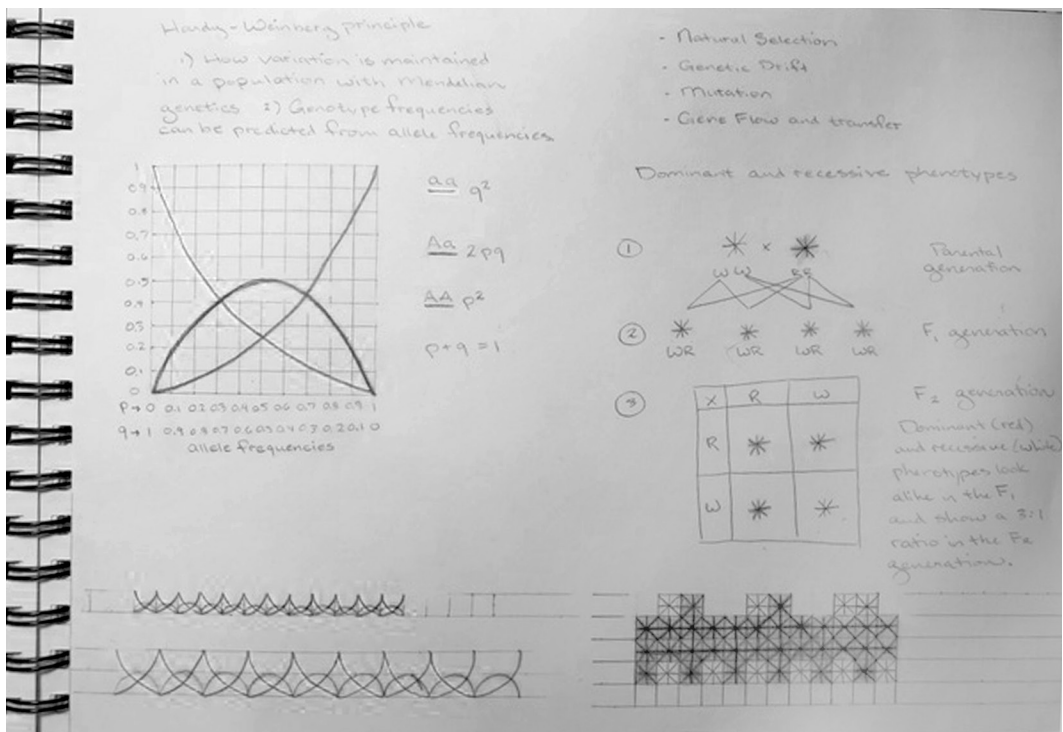 Hardy-Weinberg principle
1.) How variation is maintained
in a population with Mendelian
genetics 2.) Genotype frequencies
can be predicted from allele frequencies
1
0.9
0.8
0.7
0.6
0.5
0.4
0.3
0.2
0.1
0
P→ 0 0.1 0.2 0.3 0.4 0.5 0.6 0.7 0.8 0.9 1
q→ 1 0.9 0.8 0.7 0.6 0.5 0.4 0.3 0.2 0.1 0
allele frequencies
aa q²
Aa 2pq
AA p²
p+q=1
- Natural Selection
- Genetic Drift
- Mutation
- Gene Flow and transfer
Dominant and recessive phenotypes
1 x Parental
WW RR generation
2 F₁ generation
WR WR WR WR
3 F₂ generation
X R W
R
W
Dominant (red)
and recessive (white)
phenotypes look
alike in the F₁
and show a 3:1
ratio in the F₂
generation.